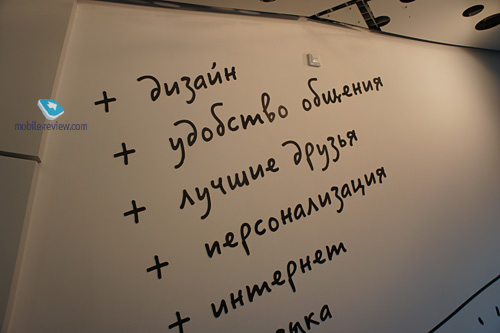 + дизайн
+ удобство общения
+ лучшие друзья
+ персонализация
+ интернет
mobile-review.com